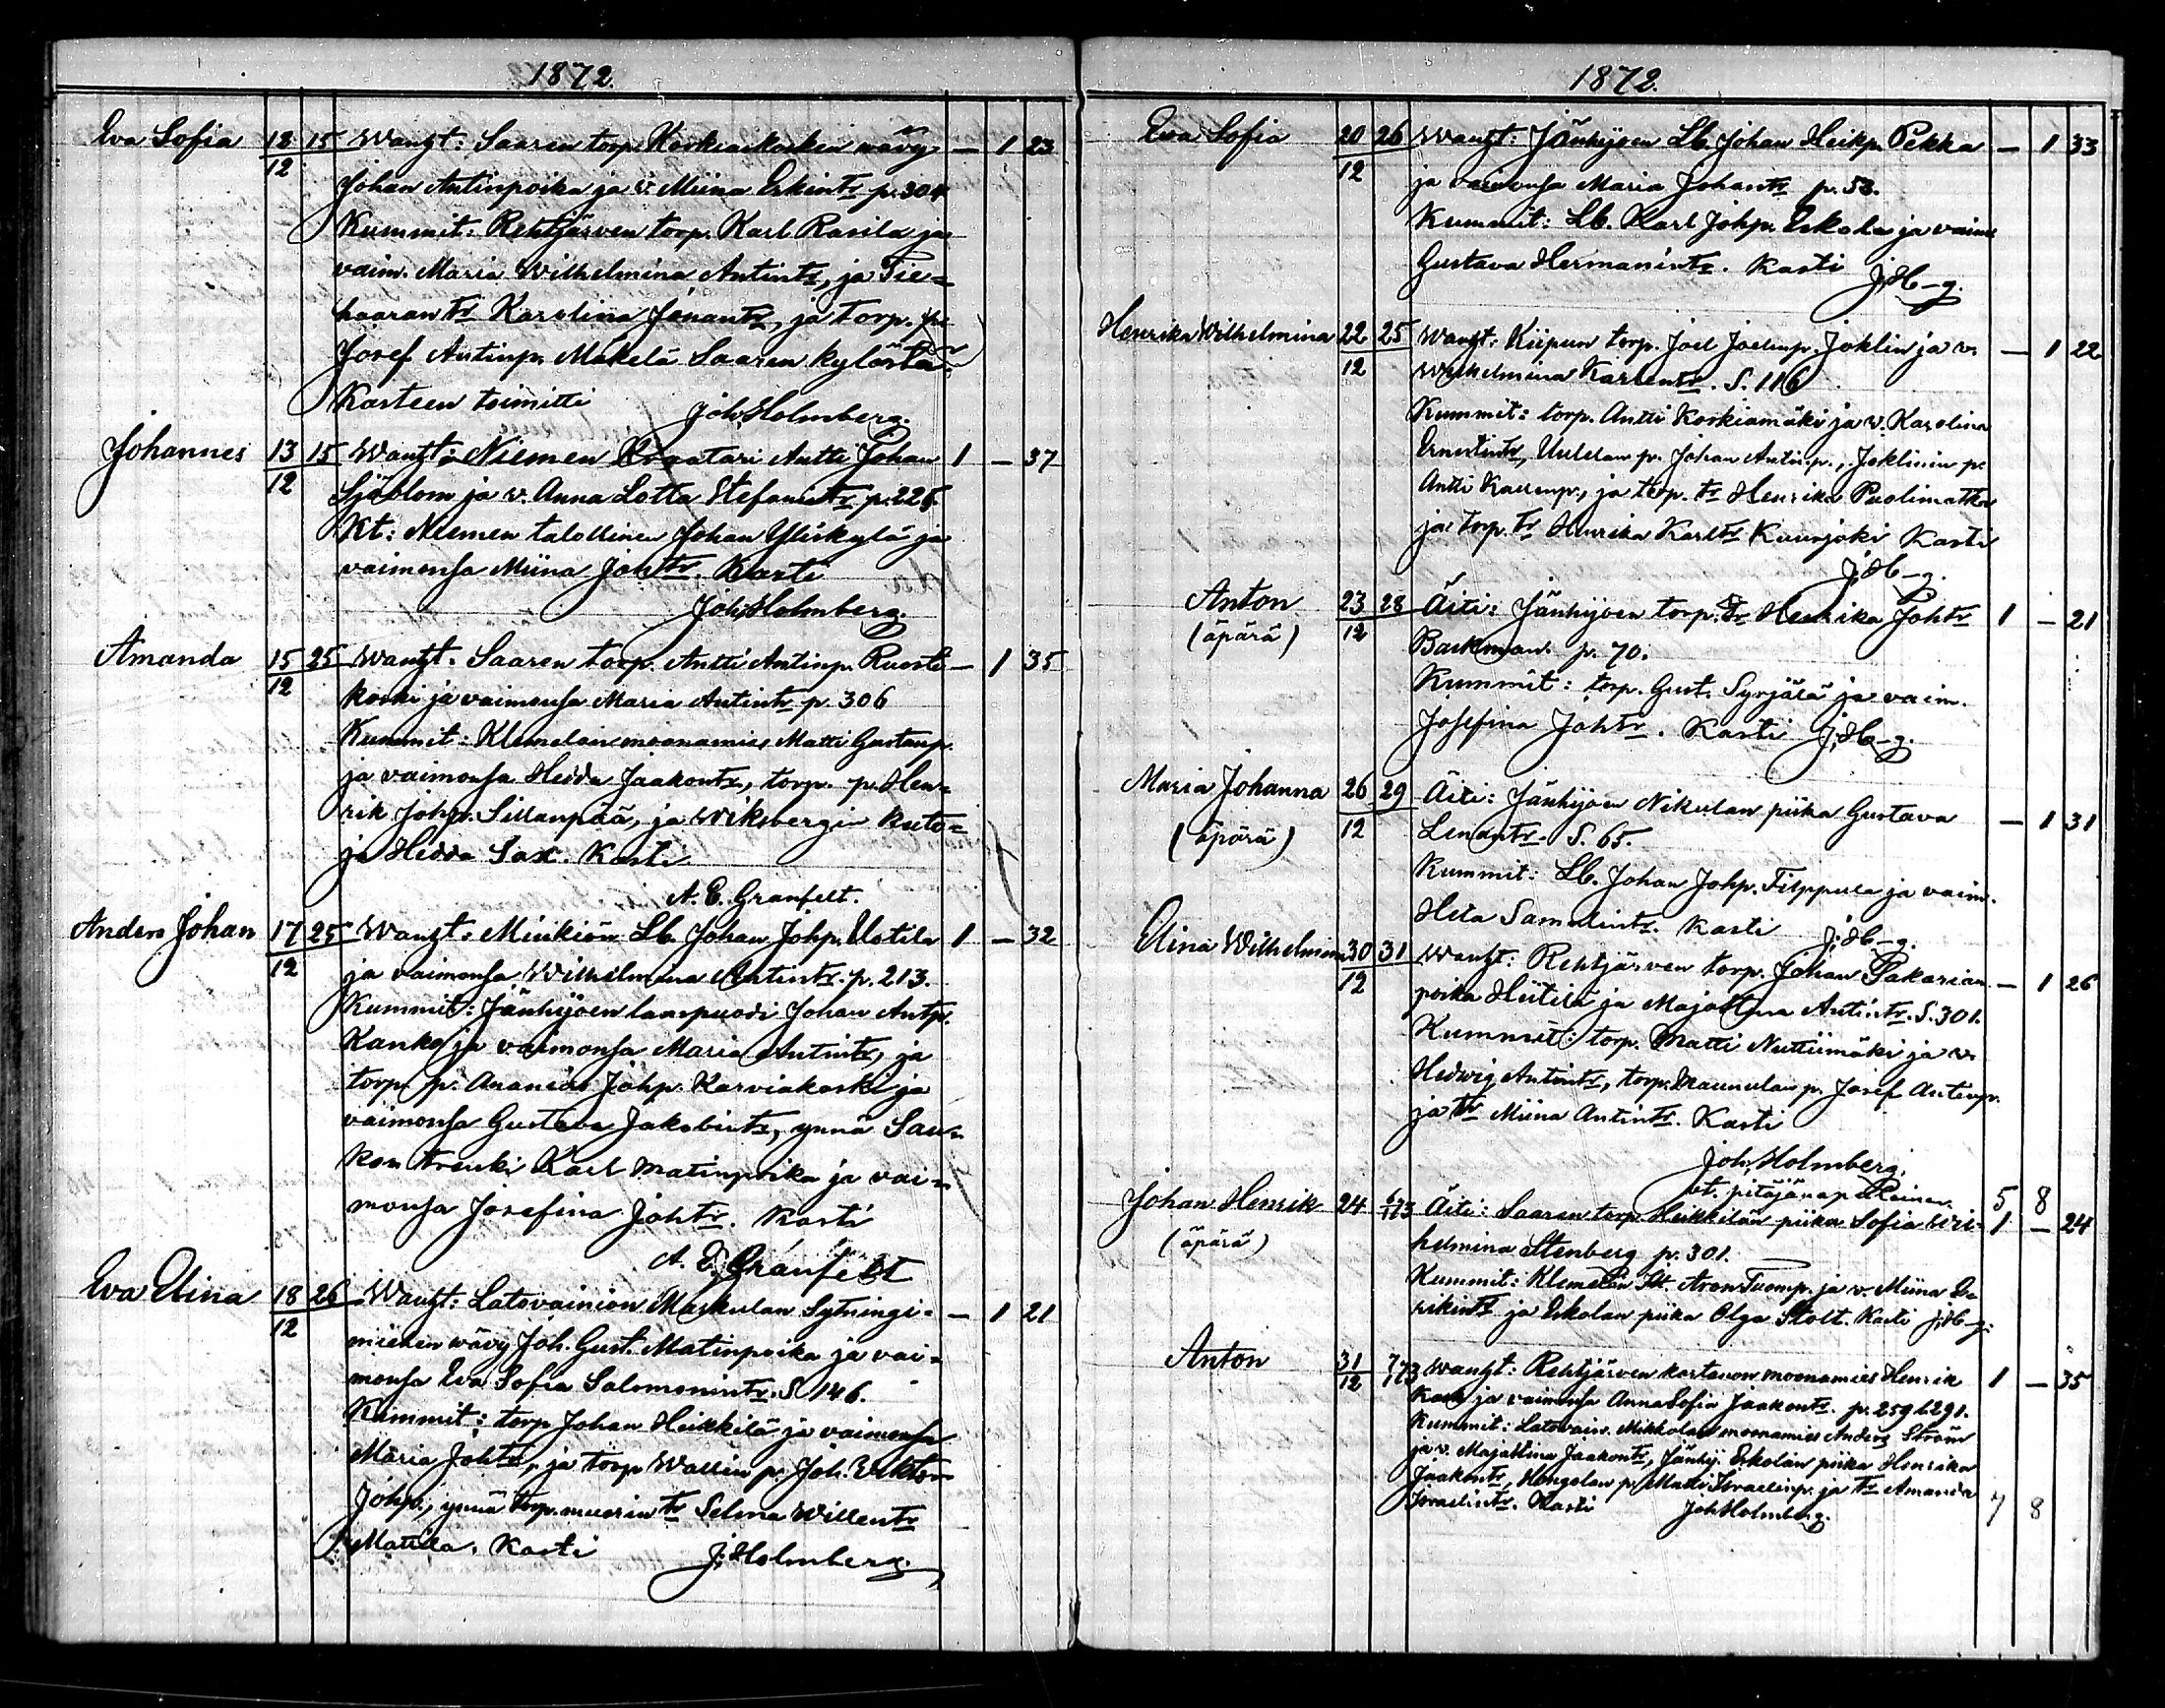 1872.
Eva Sofia 12/12 15 Wanht: Saaren torp. Koskiaisksken wävy — 1 23
Johan Antinpoika ja v. Miina Erkintr p. 304
Kummit: Rehtjärven torp. Karl Rasila ja
vaim. Maria Wilhelmina Antintr, ja Tie=
haaran tr Karolina Jonantr, ja torp. p.
Josef Antinp. Mäkelä Saaren kylästä.
Kasteen toimitti Joh. Holmberg.
Johannes 13/12 15 Wanht: Niemen Kraatari Antti Johan 1 — 37
Sjöblom ja v. Anna Lotta Stefanintr. p. 225.
Kt: Niemen talollinen Johan Yliskylä ja
vaimonsa Miina Johtr. Kasti
Joh. Holmberg.
Amanda 15/12 25 Wanht: Saaren torp. Antti Antinp. Ruoste — 1 35
koski ja vaimonsa Maria Antintr p. 306
Kummit: Klemelän moonamies Matti Gustanp.
ja vaimonsa Hedda Jaakontr, torp. p. Hen=
rik Johp. Sillanpää, ja Wiksbergin kuto=
ja Hedda Sax. Kasti
A. E. Granfelt.
Anders Johan 17/12 25 Wanht: Minkiön Lb. Johan Johp. Uotila 1 — 32
ja vaimonsa Wilhelmina Antintr. p. 213.
Kummit: Jänhijoen lampuodi Johan Antp.
Kanko ja vaimonsa Maria Antintr, ja
torp. p. Ananias Johp. Karviakoski ja
vaimonsa Gustava Jakobintr, ynnä Sau=
kon trenki Karl Matinpoika ja vai=
monsa Josefina Johtr. Kasti
A. E. Granfelt
Eva Elina 18/12 26 Wanht: Latovainion Maskulan Sytningi= — 1 21
miehen wävy Joh. Gust. Matinpoika ja vai=
monsa Eva Sofia Salomonintr. S. 146.
Kummit: torp Johan Heikkilä ja vaimonsa
Maria Johtr, ja torp Wallin p. Joh. Viktor
Johp., ynnä torp. muurin tr Selma Willentr
Matilda. Kasti J. Holmberg.
1872.
Eva Sofia 20/12 26 Wanht: Jänhijoen Lb. Johan Heikp. Pekka — 1 33
ja vaimonsa Maria Johantr p. 53.
Kummit: Lb. Karl Johp. Eskola ja vaim
Gustava Hermanintr. Kasti J. H-g.
Henrika Wilhelmina 22/12 25 Wanht: Kiipun torp. Joel Joelinp. Joklin ja v. — 1 22
Wilhelmina Karlentr. S. 116
Kummit: torp. Antti Koskiamäki ja v. Karolina
Ernestintr, Uulelan p. Johan Antinp., Joklinin p.
Antti Kallenp., ja torp. tr Henrika Puolimatka
ja torp. tr Henrika Karltr Kuusjoki Kasti
J. H-g.
Anton 23/12 28 Äiti: Jänhijoen torp. tr Henrika Johtr 1 — 21
(äpärä) Backman. p. 70.
Kummit: torp. Gust. Syrjälä ja vaim.
Josefina Johtr. Kasti J. H-g.
Maria Johanna 26/12 29 Äiti: Jänhijoen Nikulan piika Gustava — 1 31
(äpärä) Leandtr. S. 65.
Kummit: Lb. Johan Johp. Filppula ja vaim.
Heta Samulintr. Kasti J. H-g.
Elina Wilhelmina 30/12 31 Wanht: Rehtjärven torp. Johan Sakarian — 1 26
poika Hiitilä ja Majastina Antintr. S. 301.
Kummit: torp. Matti Nuttiimäki ja v.
Hedwig Antintr, torp. Maunulan p. Josef Antinp.
ja tr Miina Antintr. Kasti
Joh. Holmberg.
vt. pitäjänapulainen. 5 8
Johan Henrik 24 6/1 73 Äiti: Saaren torp. Heikkilän piika Sofia Wil= 1 — 24
(äpärä) helmina Stenberg p. 301.
Kummit: Klemelän Itt. Aron Tuomp. ja v. Miina E=
rikintr ja Eskolan piika Olga Stolt. Kasti J. H-g.
Anton 31/12 7/1 73 Wanht: Rehtjärven kartanon moonamies Henrik 1 — 35
Kark ja vaimonsa Anna Sofia Jaakontr. p. 259 l. 291.
Kummit: Latovain. Mikkolan moonamies Anders Ström
ja v. Majastina Jaakontr, Jänhij. Eskolan piika Henrika
Jaakontr, Hongolan p. Matti Israelinp. ja tr Amanda
Israelintr. Kasti Joh. Holmberg. 7 8